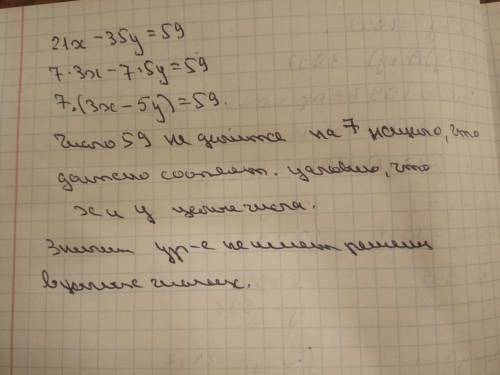 21x - 35y = 59
7·3x - 7·5y = 59
7·(3x - 5y) = 59.
Число 59 не делится на 7 нацело, что
должно соответ. условию, что
x и y целые числа.
Значит ур-е не имеет решений
в целых числах.